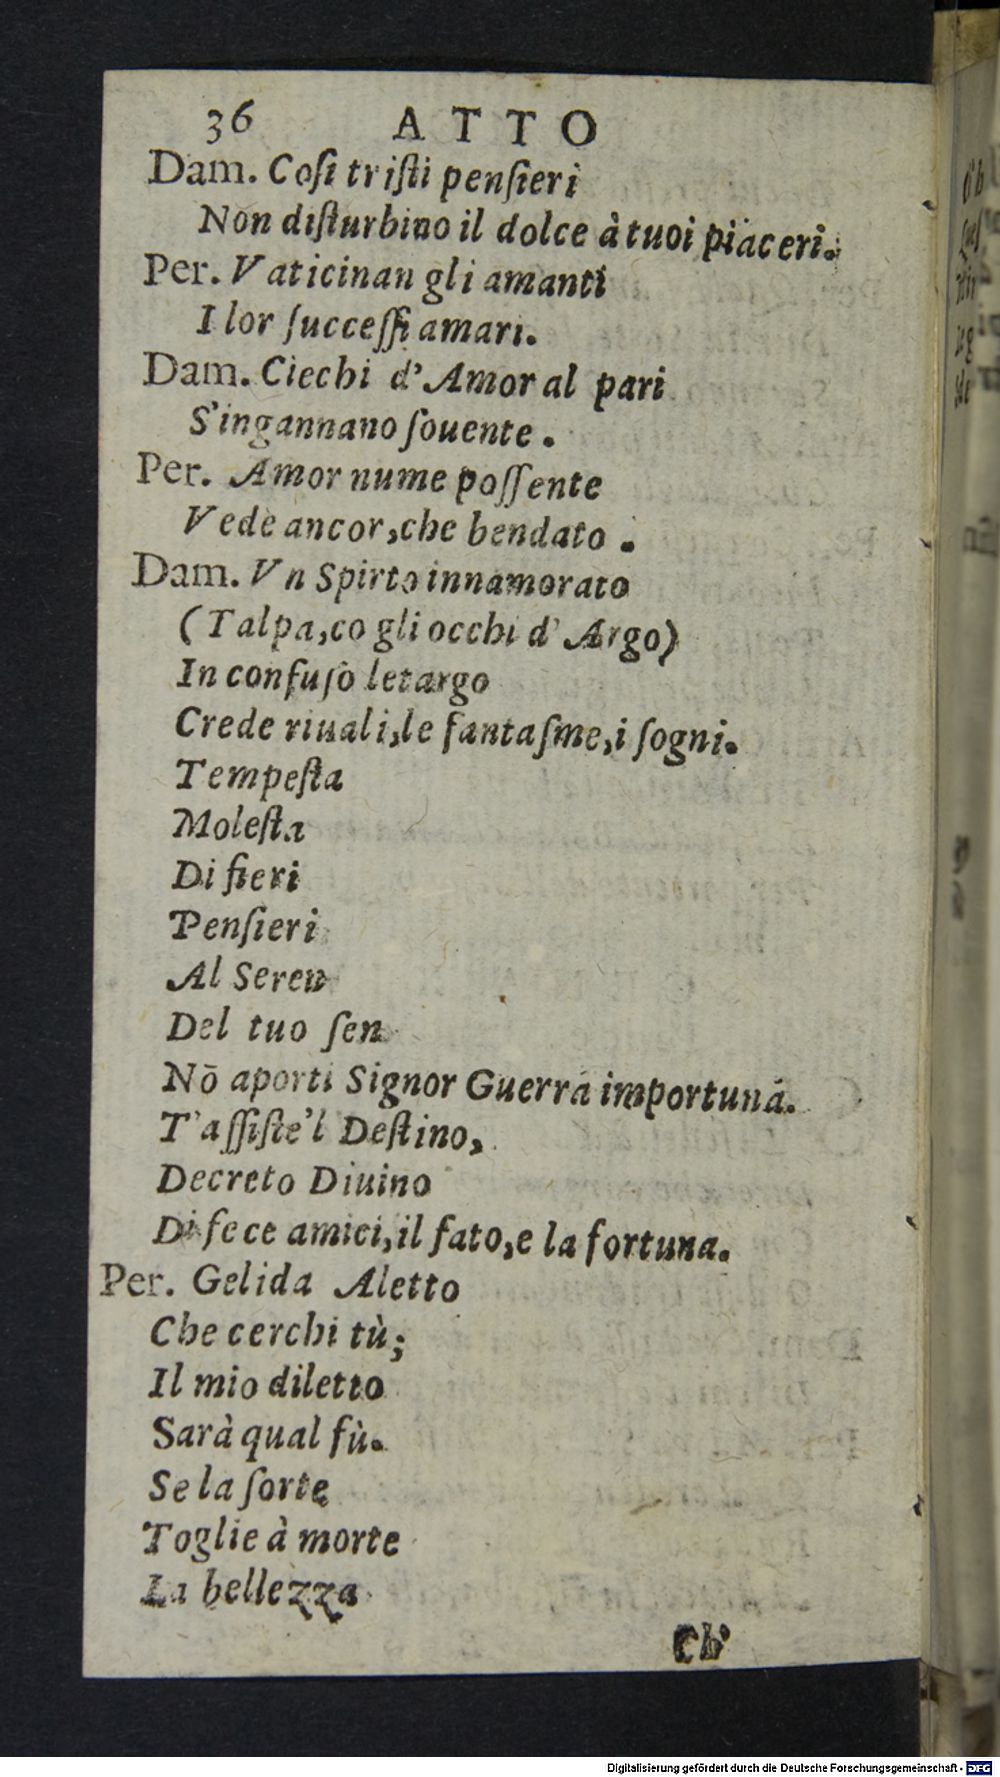 36 ATTO
Dam. Coſi triſti penſieri
Non diſturbino il dolce à tuoi piaceri.
Per. Vaticinan gli amanti
I lor ſucceſſi amari.
Dam. Ciechi d'Amor al pari
S'ingannano ſouente.
Per. Amor nume poſſente
Vede ancor, che bendato.
Dam. Vn Spirto innamorato
(Talpa, co gli occhi d'Argo)
In confuſo letargo
Crede riuali, le fantaſme, i ſogni.
Tempeſta
Moleſta
Di fieri
Penſieri
Al Seren
Del tuo ſen
Nō aporti Signor Guerra importuna.
T'aſſiſte'l Deſtino,
Decreto Diuino
Di fece amici, il fato, e la fortuna.
Per. Gelida Aletto
Che cerchi tù;
Il mio diletto
Sarà qual fù.
Se la ſorte
Toglie à morte
La bellezza
Ch'
Digitalisierung gefördert durch die Deutsche Forschungsgemeinschaft - DFG